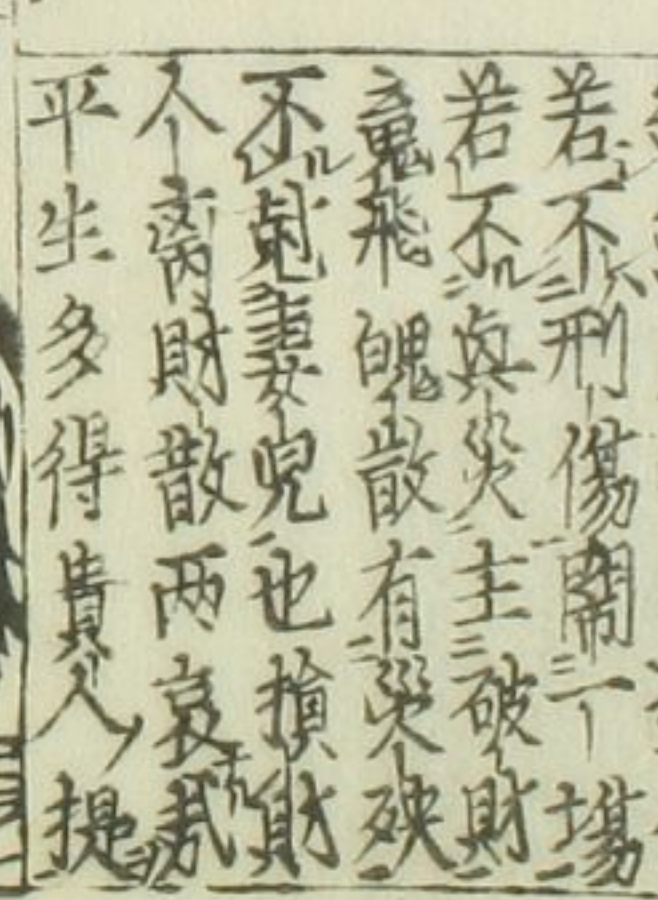 若不刑傷鬧一塲
若不與災主破財
竟飛魄散有災殃
不剋妻兒也損財
人离財散两哀哉
平生多得貴人提